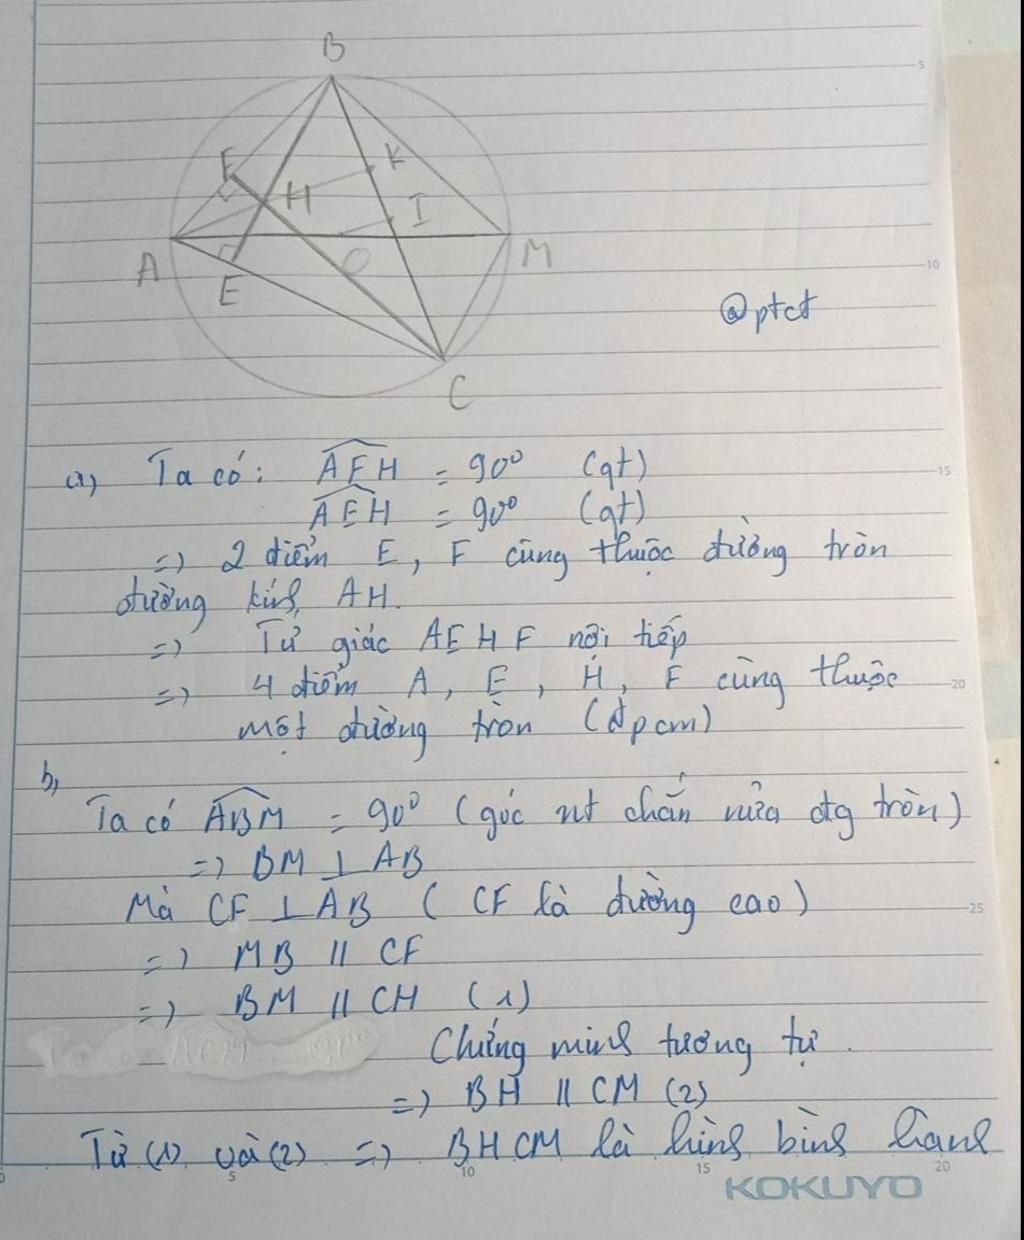 B
F
K
H
I
A
O
M
E
C
5
10
@ptct
a) Ta có: AFH = 90° (gt)
15
AEH = 90° (gt)
=> 2 điểm E, F cùng thuộc đường tròn
đường kính AH.
=> Tứ giác AEHF nội tiếp
=> 4 điểm A, E, H, F cùng thuộc
20
một đường tròn (đpcm)
b,
Ta có ABM = 90° (góc nt chắn nửa đtg tròn)
=> BM ⊥ AB
Mà CF ⊥ AB ( CF là đường cao)
25
=> MB // CF
=> BM // CH (1)
Chứng minh tương tự.
=> BH // CM (2)
Từ (1) và (2) => BHCM là hình bình hành
0 5 10 15 20
KOKUYO